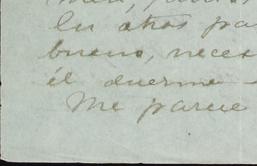 en otras pa
bueno, neces
él duerme -
Me parece